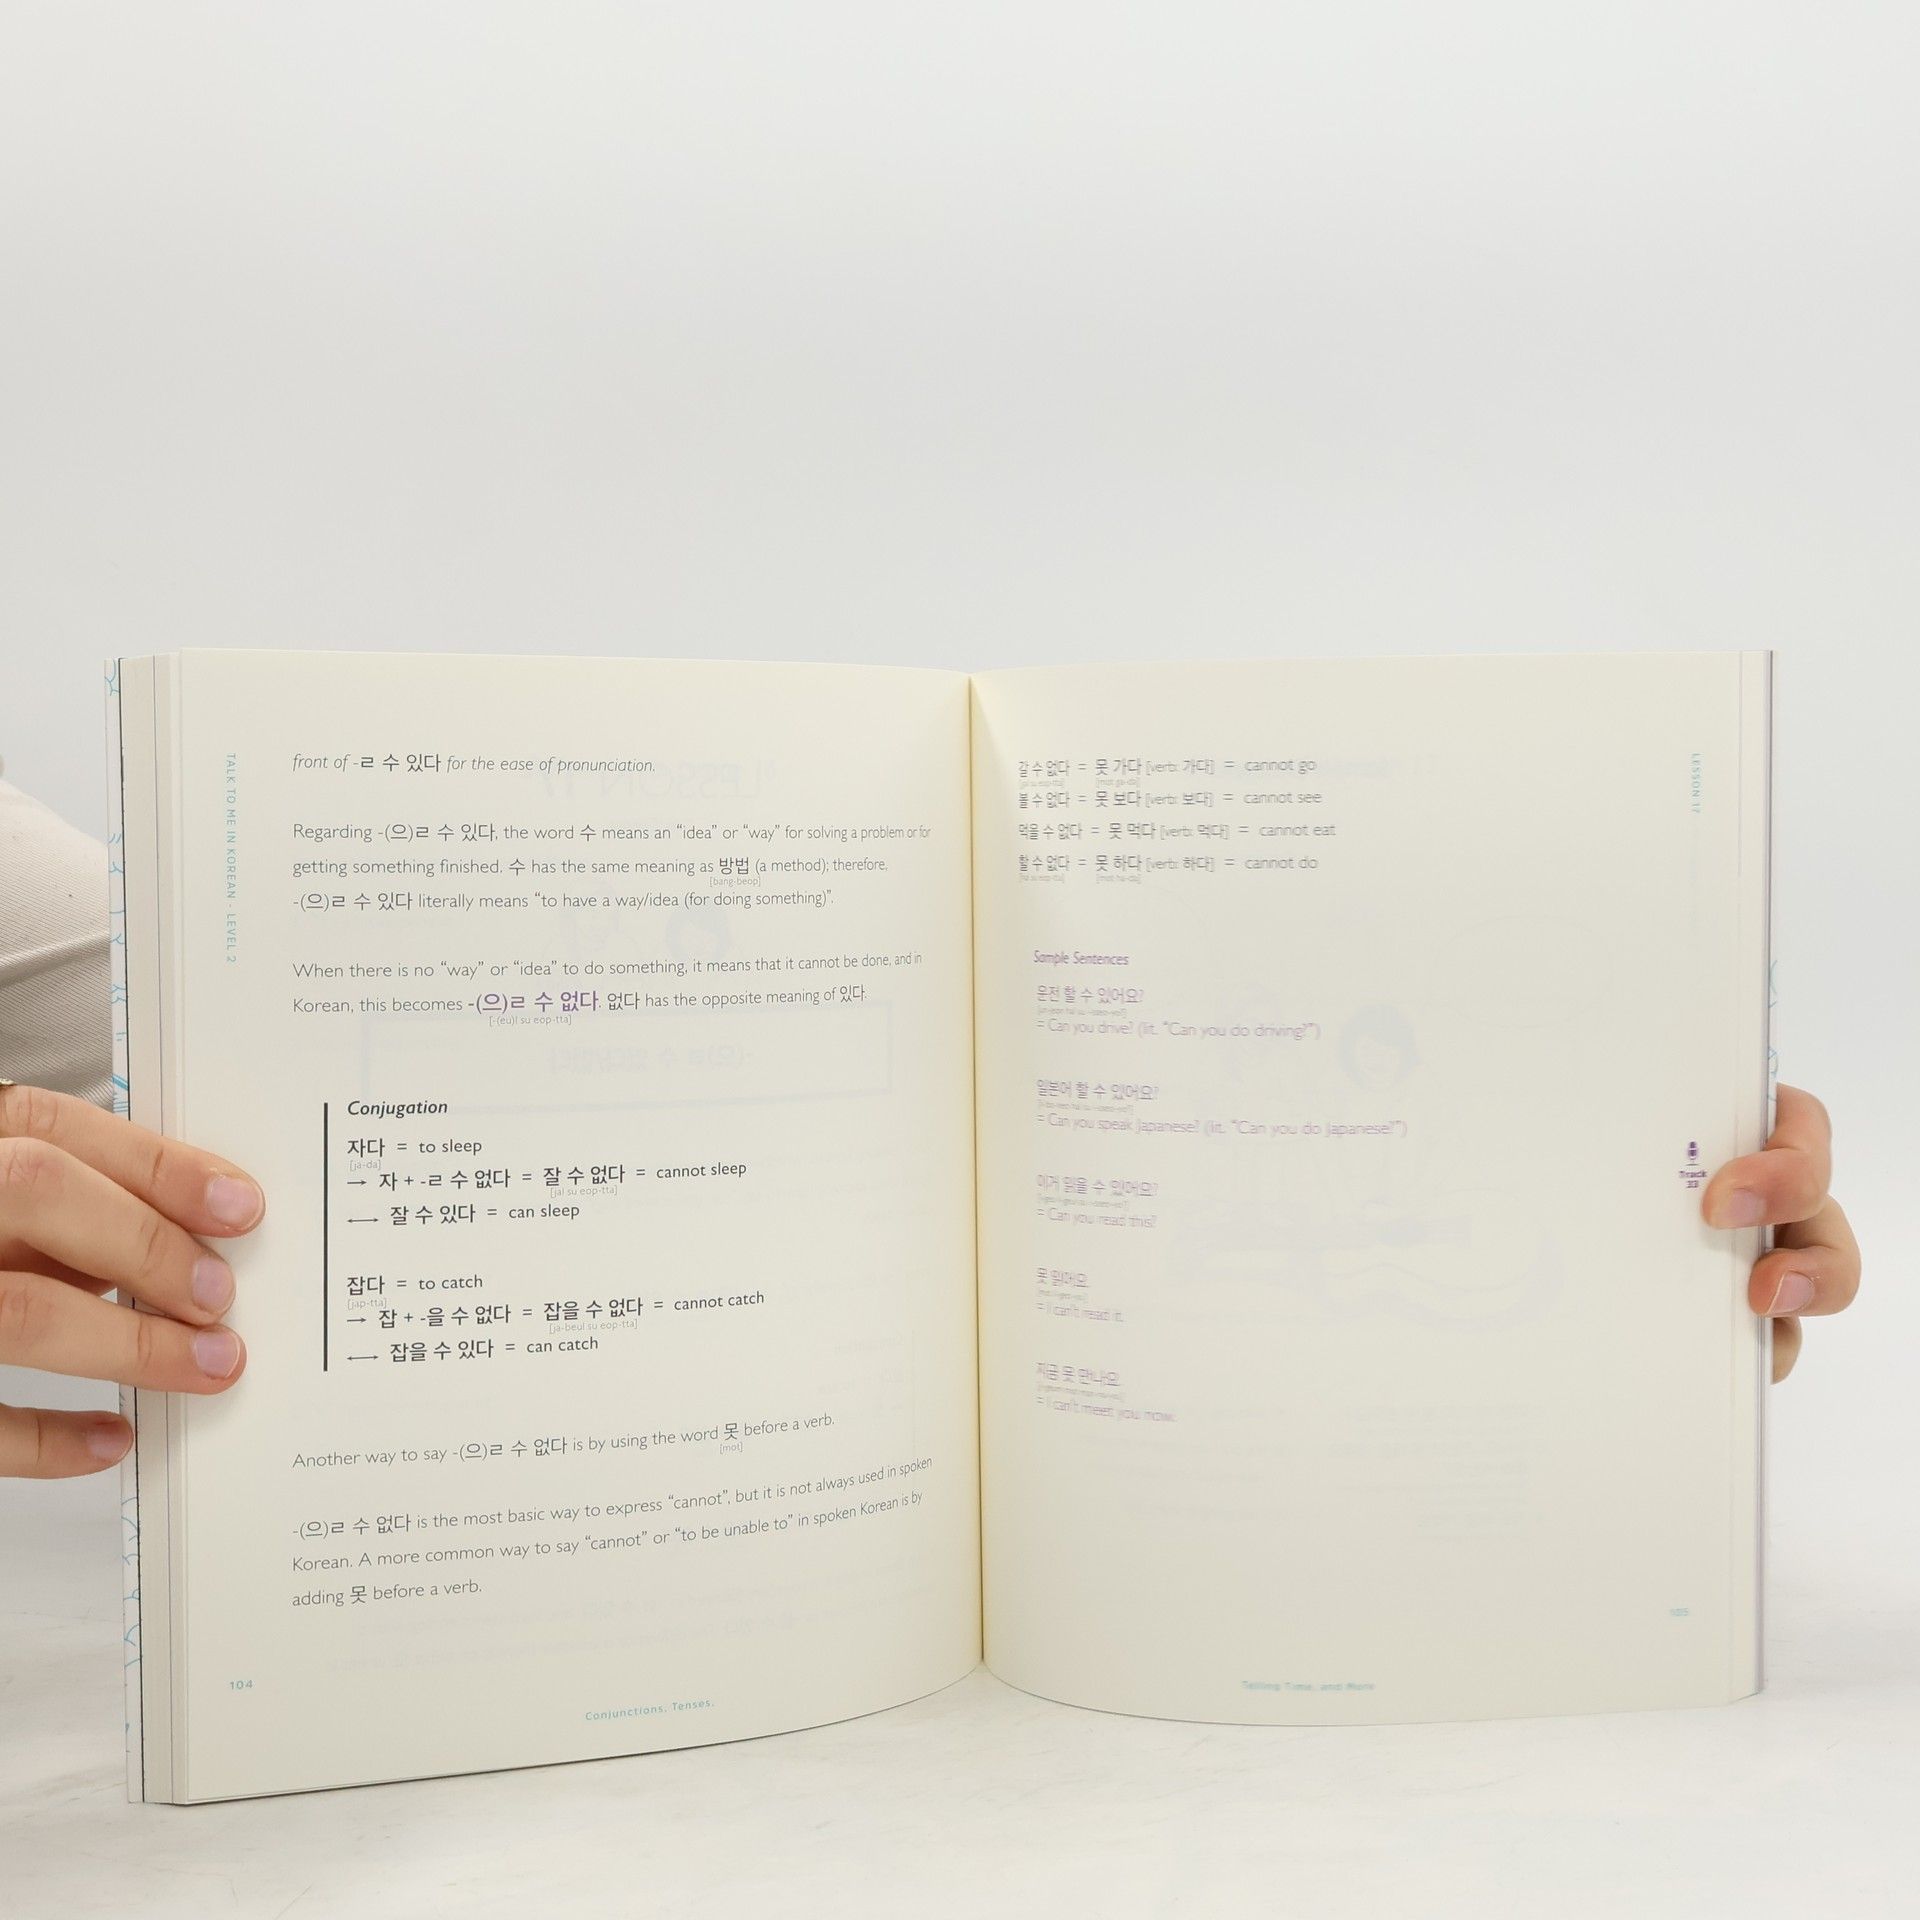 TALK TO ME IN KOREAN - LEVEL 2
front of -ㄹ 수 있다 for the ease of pronunciation.
Regarding -(으)ㄹ 수 있다, the word 수 means an “idea” or “way” for solving a problem or for
getting something finished. 수 has the same meaning as 방법 (a method); therefore,
[bang-beop]
-(으)ㄹ 수 있다 literally means “to have a way/idea (for doing something)”.
When there is no “way” or “idea” to do something, it means that it cannot be done, and in
Korean, this becomes -(으)ㄹ 수 없다. 없다 has the opposite meaning of 있다.
[-(eu)l su eop-tta]
Conjugation
자다 = to sleep
[ja-da]
→ 자 + -ㄹ 수 없다 = 잘 수 없다 = cannot sleep
[jal su eop-tta]
←→ 잘 수 있다 = can sleep
잡다 = to catch
[jap-tta]
→ 잡 + -을 수 없다 = 잡을 수 없다 = cannot catch
[ja-beul su eop-tta]
←→ 잡을 수 있다 = can catch
Another way to say -(으)ㄹ 수 없다 is by using the word 못 before a verb.
[mot]
-(으)ㄹ 수 없다 is the most basic way to express “cannot”, but it is not always used in spoken
Korean. A more common way to say “cannot” or “to be unable to” in spoken Korean is by
adding 못 before a verb.
104
Conjunctions, Tenses,
LESSON 17
갈 수 없다 = 못 가다 [verb: 가다] = cannot go
[mot ga-da]
볼 수 없다 = 못 보다 [verb: 보다] = cannot see
먹을 수 없다 = 못 먹다 [verb: 먹다] = cannot eat
할 수 없다 = 못 하다 [verb: 하다] = cannot do
[mot ha-da]
Sample Sentences
운전 할 수 있어요?
= Can you drive? (lit. “Can you do driving?”)
일본어 할 수 있어요?
= Can you speak Japanese? (lit. “Can you do Japanese?”)
이거 읽을 수 있어요?
= Can you read this?
못 읽어요.
= I can’t read it.
지금 못 만나요.
= I can’t meet you now.
Track
33
105
Telling Time, and More